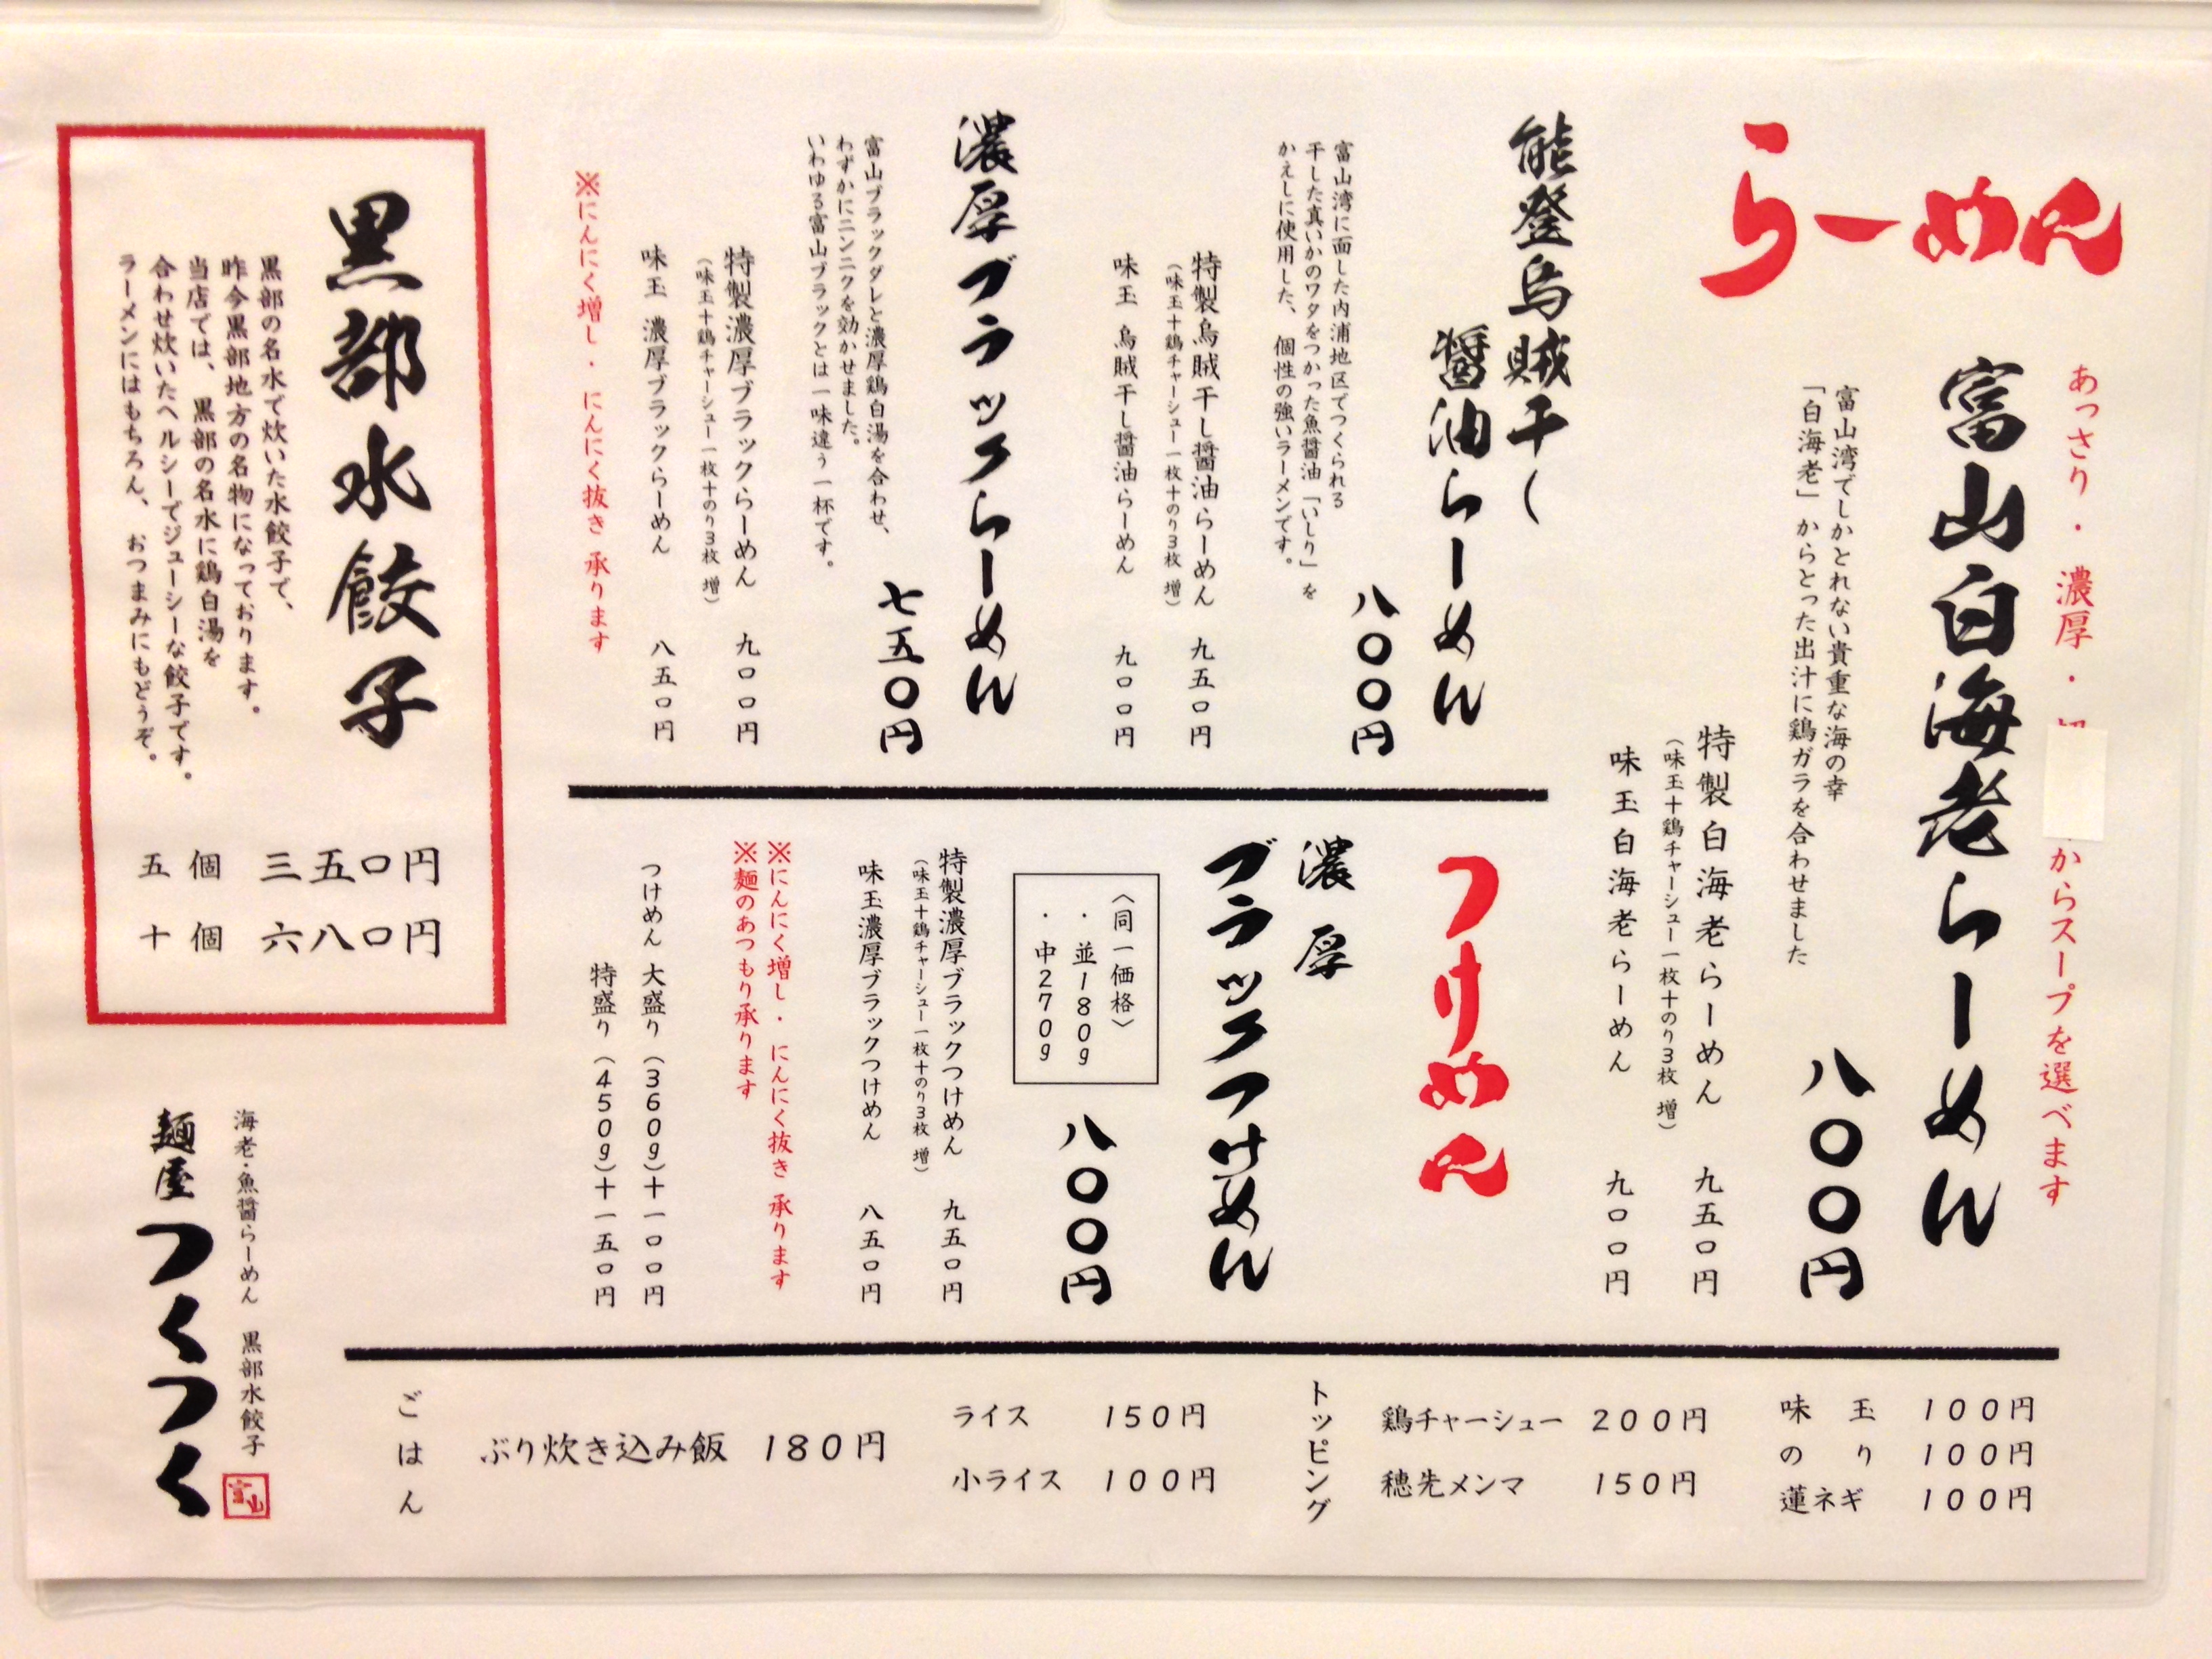 らーめん
あっさり・濃厚・
からスープを選べます
富山白海老らーめん
八〇〇円
富山湾でしかとれない貴重な海の幸
「白海老」からとった出汁に鶏ガラを合わせました
特製白海老らーめん 九五〇円
（味玉＋鶏チャーシュー一枚＋のり3枚 増）
味玉白海老らーめん 九〇〇円
能登烏賊干し
醤油らーめん
八〇〇円
富山湾に面した内浦地区でつくられる
干した真いかのワタをつかった魚醤油「いしり」を
かえしに使用した、個性の強いラーメンです。
特製烏賊干し醤油らーめん 九五〇円
（味玉＋鶏チャーシュー一枚＋のり3枚 増）
味玉 烏賊干し醤油らーめん 九〇〇円
濃厚ブラックらーめん
七五〇円
富山ブラックダレと濃厚鶏白湯を合わせ、
わずかにニンニクを効かせました。
いわゆる富山ブラックとは一味違う一杯です。
特製濃厚ブラックらーめん 九〇〇円
（味玉＋鶏チャーシュー一枚＋のり3枚 増）
味玉 濃厚ブラックらーめん 八五〇円
※にんにく増し・にんにく抜き 承ります
つけめん
濃厚
ブラックつけめん
八〇〇円
〈同一価格〉
・並180g
・中270g
特製濃厚ブラックつけめん 九五〇円
（味玉＋鶏チャーシュー一枚＋のり3枚 増）
味玉濃厚ブラックつけめん 八五〇円
※にんにく増し・にんにく抜き 承ります
※麺のあつもり承ります
つけめん 大盛り（360g）＋一〇〇円
特盛り（450g）＋一五〇円
黒部水餃子
黒部の名水で炊いた水餃子で、
昨今黒部地方の名物になっております。
当店では、黒部の名水に鶏白湯を
合わせ炊いたヘルシーでジューシーな餃子です。
ラーメンにはもちろん、おつまみにもどうぞ。
五個 三五〇円
十個 六八〇円
トッピング
味玉 100円
のり 100円
蓮ネギ 100円
鶏チャーシュー 200円
穂先メンマ 150円
ごはん
ぶり炊き込み飯 180円
ライス 150円
小ライス 100円
海老・魚醤らーめん 黒部水餃子
麺屋つくつく
富山